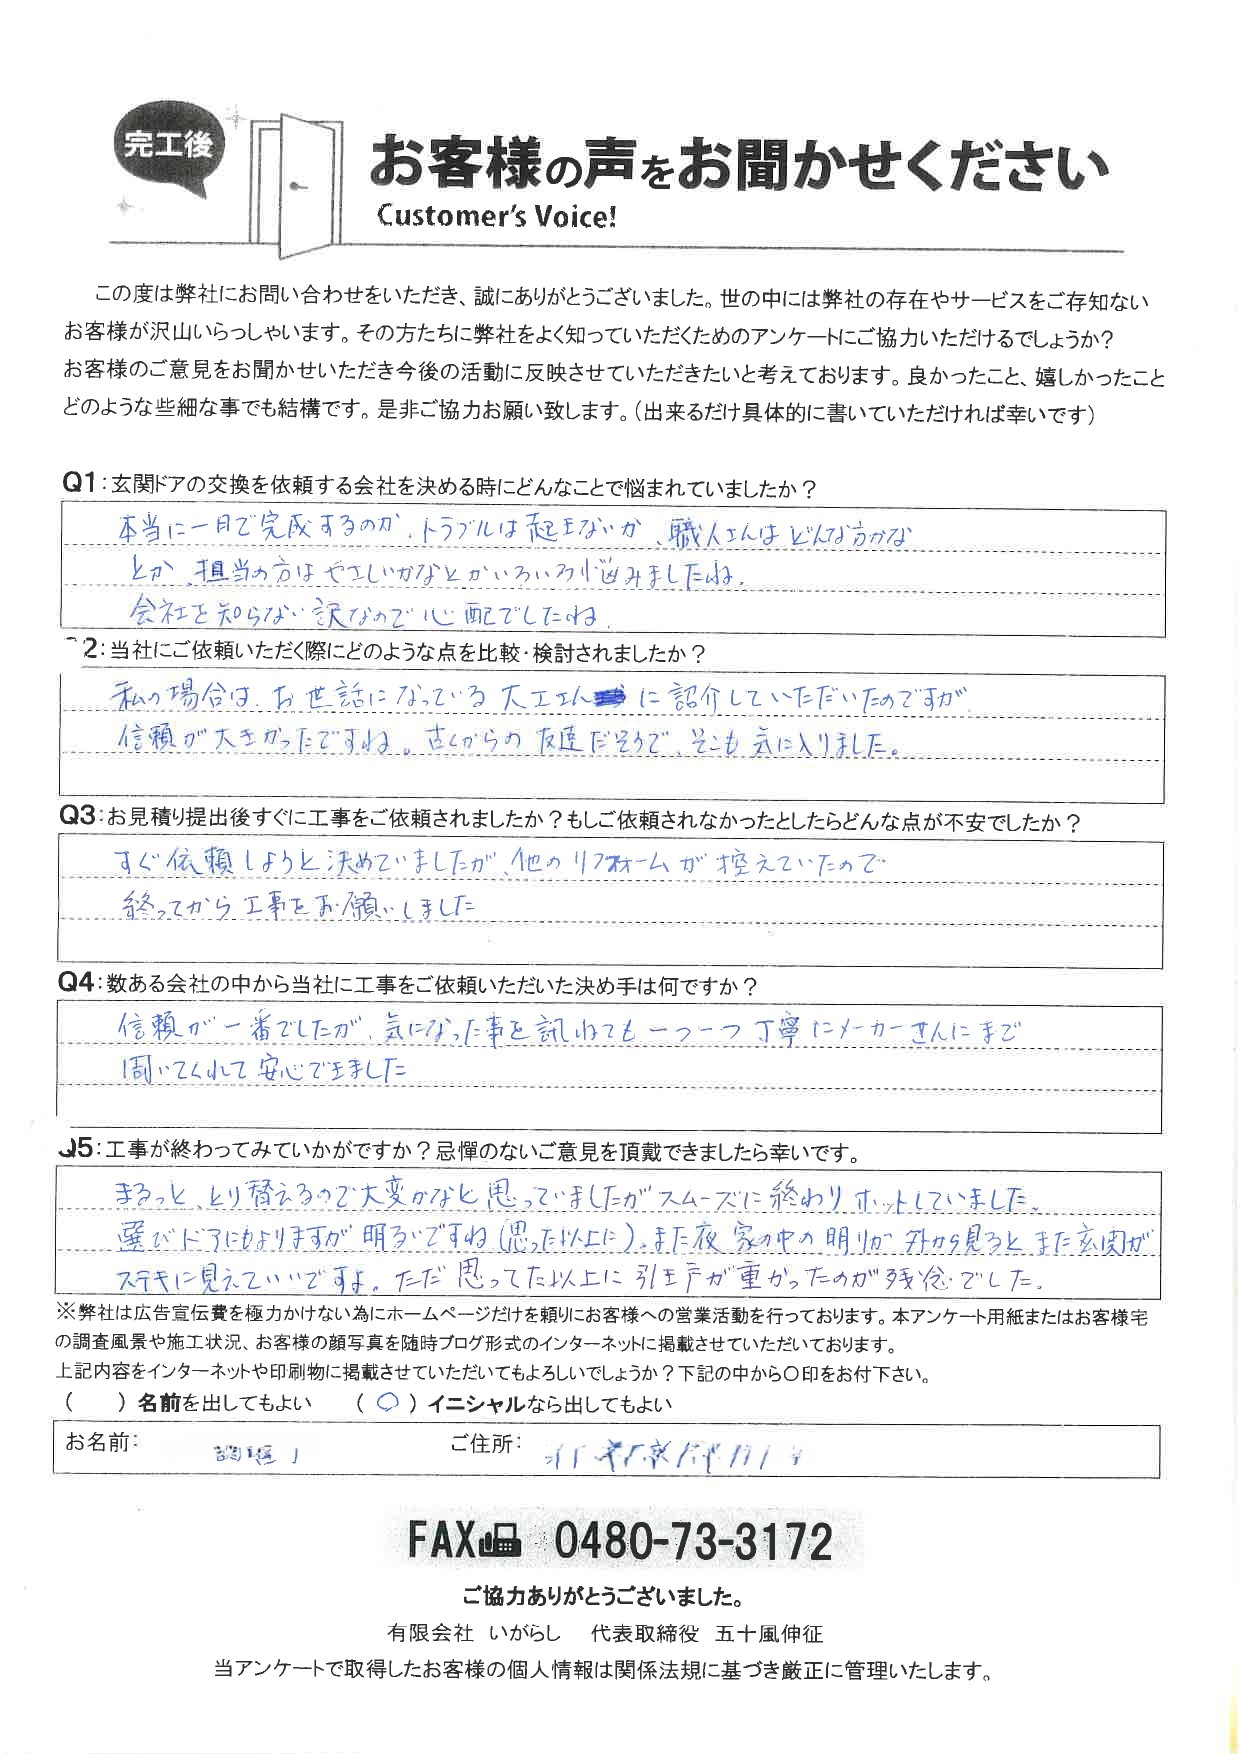 完工後
お客様の声をお聞かせください
Customer's Voice!
この度は弊社にお問い合わせをいただき、誠にありがとうございました。世の中には弊社の存在やサービスをご存知ない
お客様が沢山いらっしゃいます。その方たちに弊社をよく知っていただくためのアンケートにご協力いただけるでしょうか？
お客様のご意見をお聞かせいただき今後の活動に反映させていただきたいと考えております。良かったこと、嬉しかったこと
どのような些細な事でも結構です。是非ご協力お願い致します。（出来るだけ具体的に書いていただければ幸いです）
Q1：玄関ドアの交換を依頼する会社を決める時にどんなことで悩まれていましたか？
本当に一日で完成するのか、トラブルは起きないか、職人さんはどんな方かな
とか、担当の方はやさしいかなとかいろいろ悩みましたね。
会社を知らない訳なので心配でしたね。
2：当社にご依頼いただく際にどのような点を比較・検討されましたか？
私の場合は、お世話になっている大工さんに紹介していただいたのですが
信頼が大きかったですね。古くからの友達だそうで、そこも気に入りました。
Q3：お見積り提出後すぐに工事をご依頼されましたか？もしご依頼されなかったとしたらどんな点が不安でしたか？
すぐ依頼しようと決めていましたが、他のリフォームが控えていたので
終ってから工事をお願いしました
Q4：数ある会社の中から当社に工事をご依頼いただいた決め手は何ですか？
信頼が一番でしたが、気になった事を訊ねても一つ一つ丁寧にメーカーさんにまで
聞いてくれて安心できました
Q5：工事が終わってみていかがですか？忌憚のないご意見を頂戴できましたら幸いです。
まるっと、とり替えるので大変かなと思っていましたがスムーズに終わりホットしていました。
選びドアにもよりますが明るいですね（思った以上に）。また夜家の中の明りが外から見るとまた玄関が
ステキに見えていいですよ。ただ思ってた以上に引き戸が重かったのが残念でした。
※弊社は広告宣伝費を極力かけない為にホームページだけを頼りにお客様への営業活動を行っております。本アンケート用紙またはお客様宅
の調査風景や施工状況、お客様の顔写真を随時ブログ形式のインターネットに掲載させていただいております。
上記内容をインターネットや印刷物に掲載させていただいてもよろしいでしょうか？下記の中から〇印をお付下さい。
（　　）名前を出してもよい　（ ○ ）イニシャルなら出してもよい
お名前：　ご住所：
FAX 0480-73-3172
ご協力ありがとうございました。
有限会社 いがらし　代表取締役 五十風伸征
当アンケートで取得したお客様の個人情報は関係法規に基づき厳正に管理いたします。